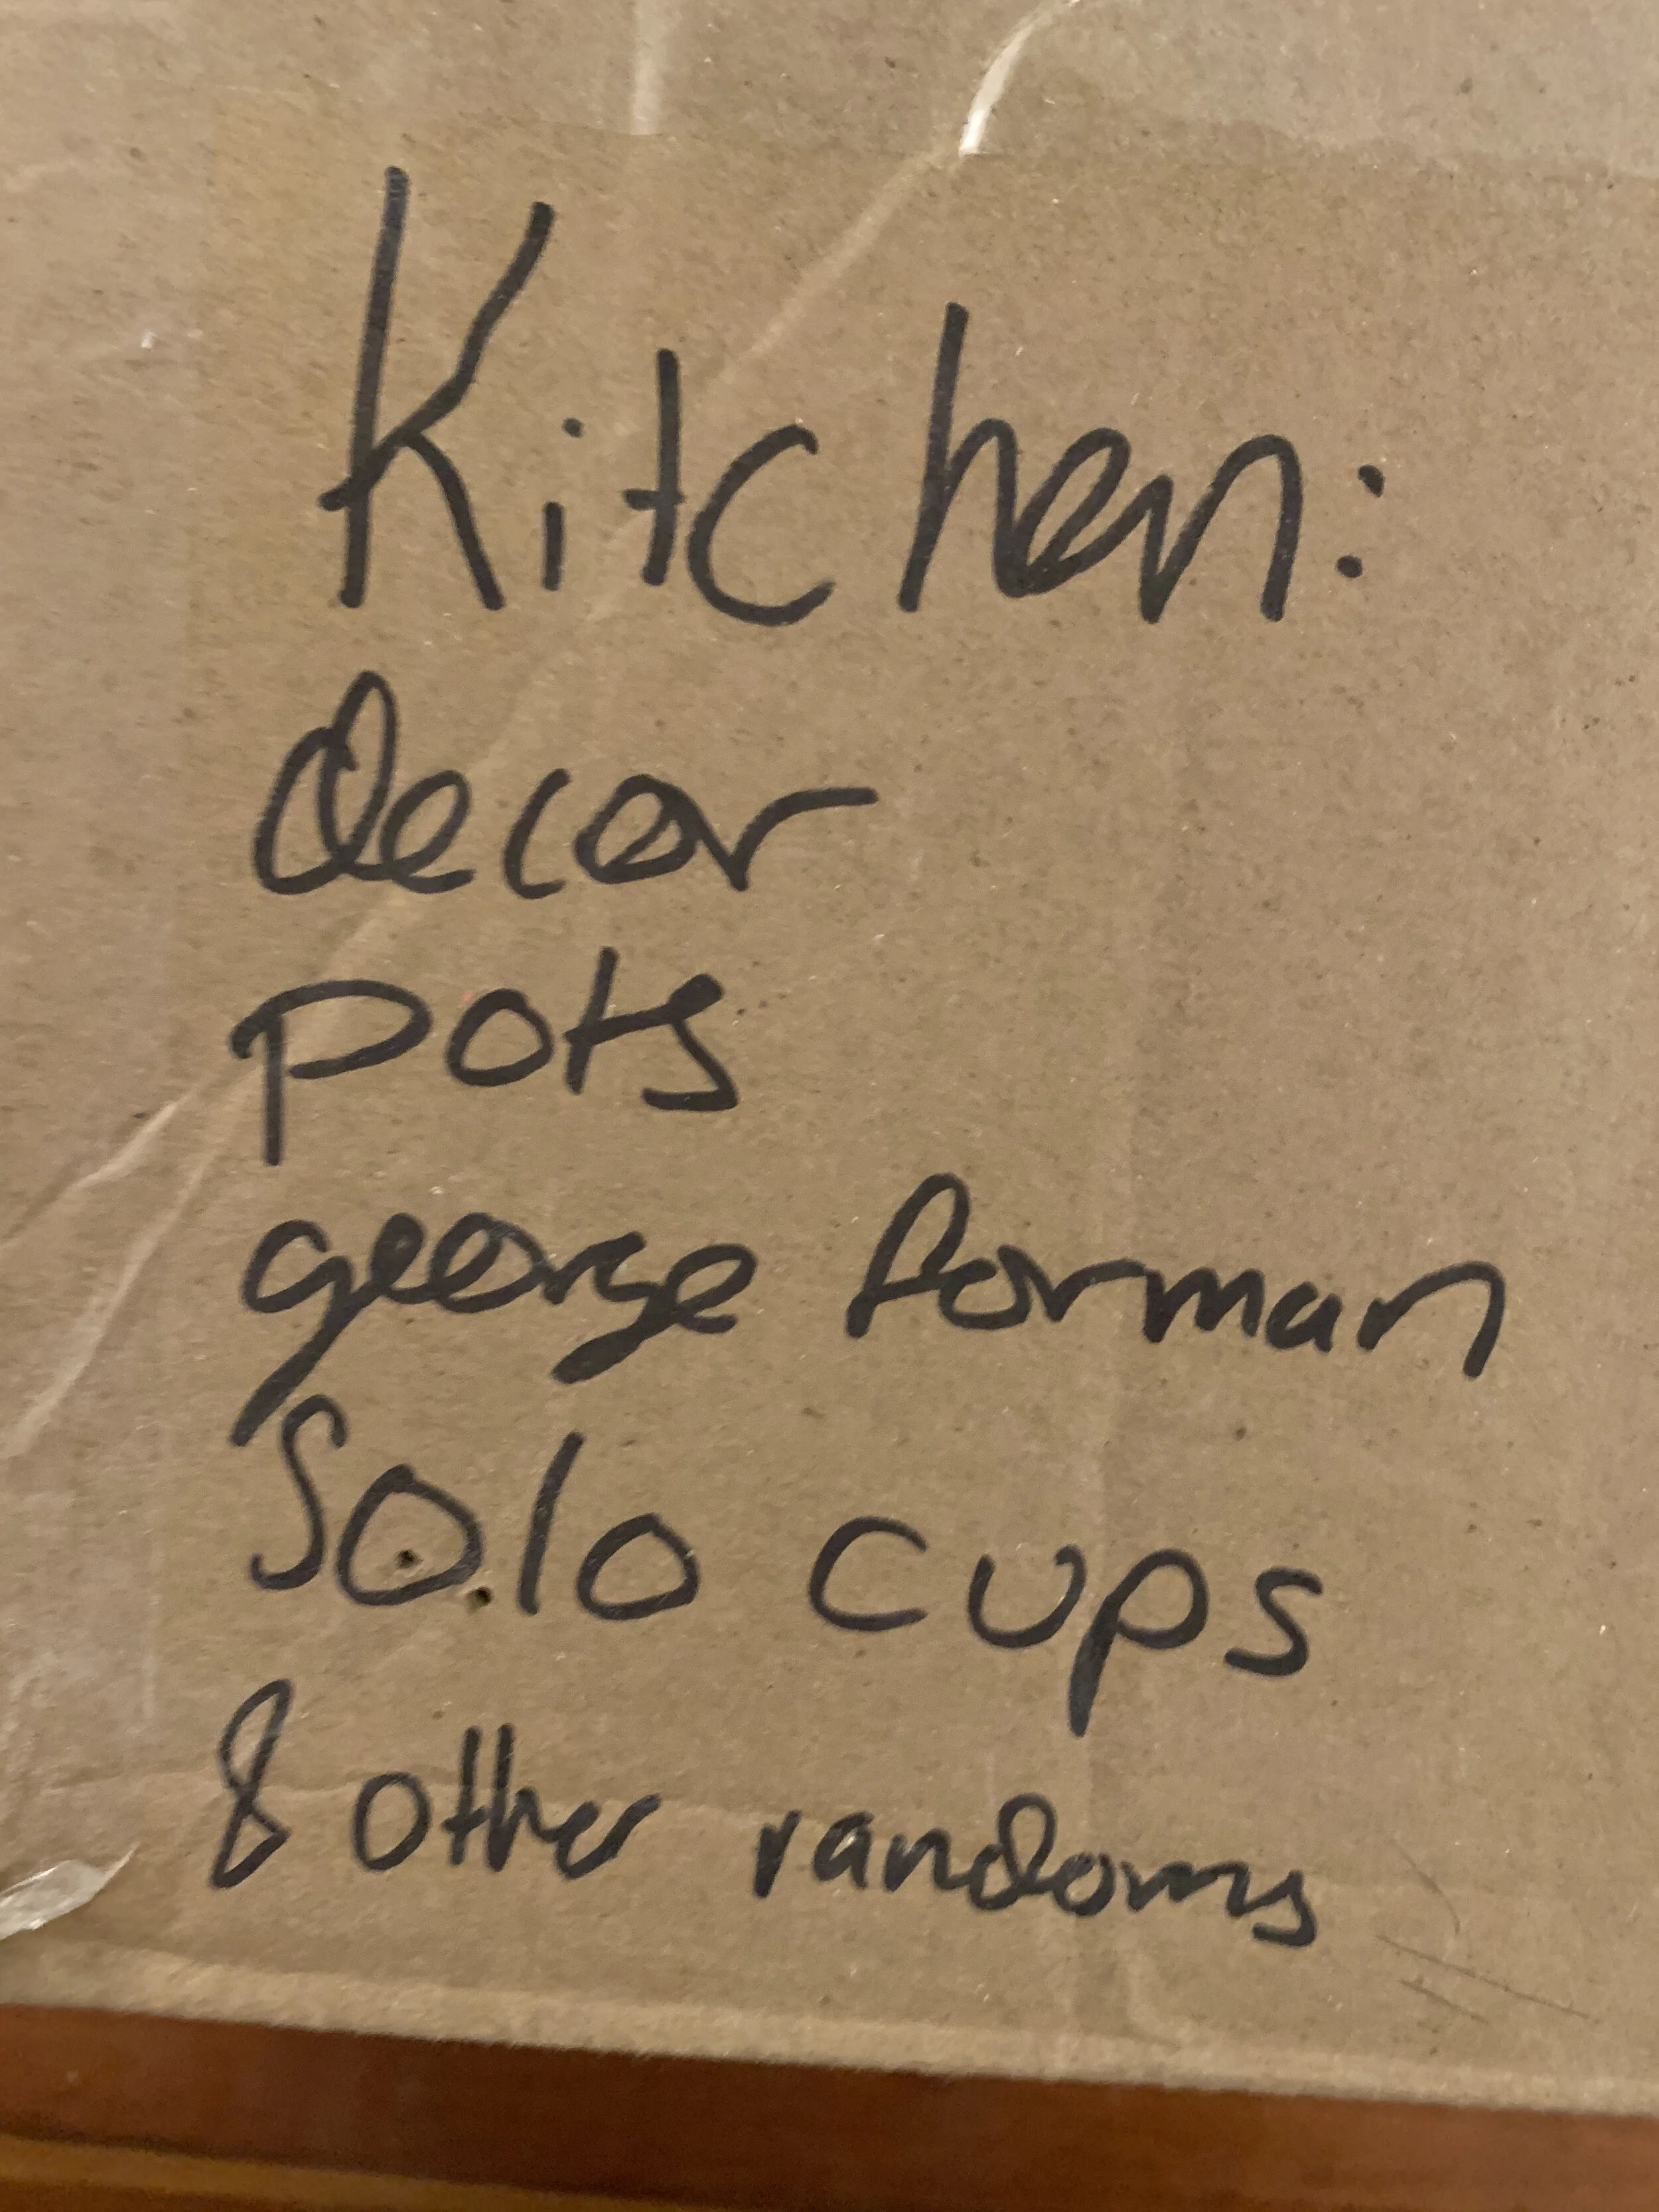 Kitchen:
Decor
pots
george forman
Solo cups
& other randoms